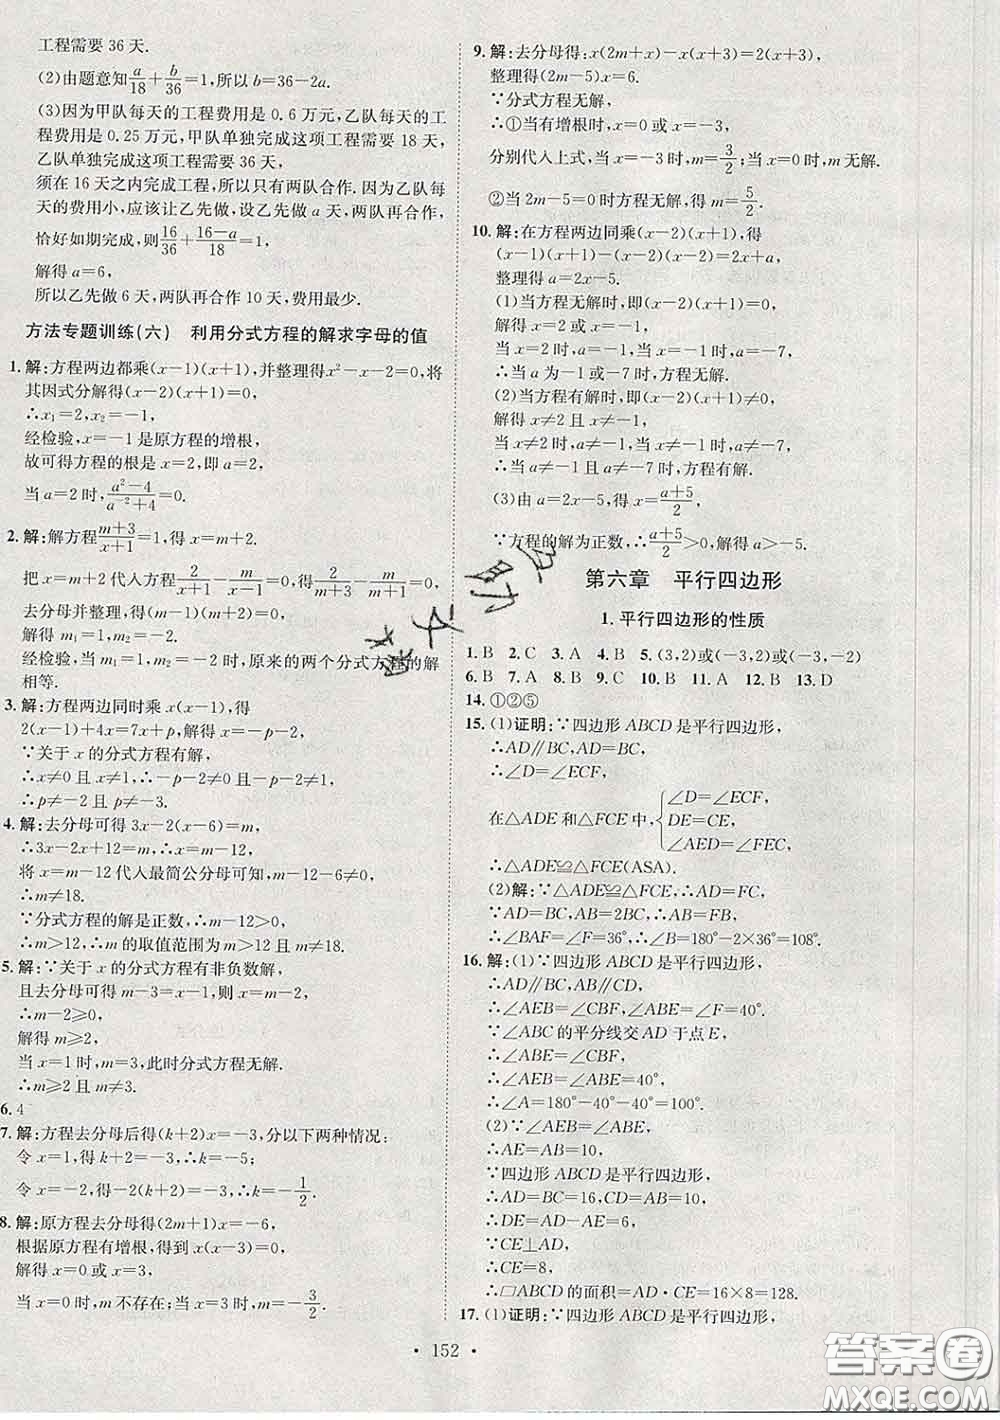 工程需要36天.
(2)由题意知a/18+b/36=1,所以b=36-2a.
(3)因为甲队每天的工程费用是0.6万元,乙队每天的工
程费用是0.25万元,甲队单独完成这项工程需要18天,
乙队单独完成这项工程需要36天,
须在16天之内完成工程,所以只有两队合作.因为乙队每
天的费用小,应该让乙先做,设乙先做a天,两队再合作,
恰好如期完成,则16/36+(16-a)/18=1,
解得a=6,
所以乙先做6天,两队再合作10天,费用最少.
方法专题训练(六) 利用分式方程的解求字母的值
1.解:方程两边都乘(x-1)(x+1),并整理得x²-x-2=0,将
其因式分解得(x-2)(x+1)=0,
∴x₁=2,x₂=-1,
经检验,x=-1是原方程的增根,
故可得方程的根是x=2,即a=2,
当a=2时,(a²-4)/(a⁻²+4)=0.
2.解:解方程(m+3)/(x+1)=1,得x=m+2.
把x=m+2代入方程2/(x+1)-m/(x-1)=0,得2/(m+3)-m/(m+1)=0,
去分母并整理,得m²+m-2=0,
解得m₁=1,m₂=-2.
经检验,当m₁=1,m₂=-2时,原来的两个分式方程的解
相等.
3.解:方程两边同时乘x(x-1),得
2(x-1)+4x=7x+p,解得x=-p-2,
∵关于x的分式方程有解,
∴x≠0且x≠1,∴-p-2≠0且-p-2≠1,
∴p≠-2且p≠-3.
4.解:去分母可得3x-2(x-6)=m,
∴3x-2x+12=m,∴x=m-12,
将x=m-12代入最简公分母可知,m-12-6≠0,
∴m≠18.
∵分式方程的解是正数,∴m-12>0,
∴m>12,∴m的取值范围为m>12且m≠18.
5.解:∵关于x的分式方程有非负数解,
且去分母可得m-3=x-1,则x=m-2,
∴m-2⩾0,
解得m⩾2,
当x=1时,m=3,此时分式方程无解.
∴m⩾2且m≠3.
6.4
7.解:方程去分母后得(k+2)x=-3,分以下两种情况:
令x=1,得k+2=-3,∴k=-5;
令x=-2,得-2(k+2)=-3,∴k=-1/2.
8.解:原方程去分母得(2m+1)x=-6,
根据原方程有增根,得到x(x-3)=0,
解得x=0或x=3,
当x=0时,m不存在;当x=3时,m=-3/2.
9.解:去分母得:x(2m+x)-x(x+3)=2(x+3),
整理得(2m-5)x=6.
∵分式方程无解,
∴①当有增根时,x=0或x=-3,
分别代入上式,当x=-3时,m=3/2;当x=0时,m无解.
②当2m-5=0时方程无解,得m=5/2.
10.解:在方程两边同乘(x-2)(x+1),得
(x-1)(x+1)-(x-2)(x-2)=2x+a,
整理得a=2x-5.
(1)当方程无解时,即(x-2)(x+1)=0,
解得x=2或x=-1,
当x=2时,a=-1,
当x=-1时,a=-7,
∴当a为-1或-7时,方程无解.
(2)当方程有解时,即(x-2)(x+1)≠0,
解得x≠2且x≠-1,
当x≠2时,a≠-1,当x≠-1时,a≠-7,
∴当a≠-1且a≠-7时,方程有解.
(3)由a=2x-5,得x=(a+5)/2,
∵方程的解为正数,∴(a+5)/2>0,解得a>-5.
第六章 平行四边形
1.平行四边形的性质
1.B 2.C 3.A 4.B 5.(3,2)或(-3,2)或(-3,-2)
6.B 7.A 8.B 9.C 10.B 11.A 12.B 13.D
14.①②⑤
15.(1)证明:∵四边形ABCD是平行四边形,
∴AD∥BC,AD=BC,
∴∠D=∠ECF,
在△ADE和△FCE中,{∠D=∠ECF,
DE=CE,
∠AED=∠FEC,
∴△ADE≌△FCE(ASA).
(2)解:∵△ADE≌△FCE,∴AD=FC,
∵AD=BC,AB=2BC,∴AB=FB,
∴∠BAF=∠F=36°,∴∠B=180°-2×36°=108°.
16.解:(1)∵四边形ABCD是平行四边形,
∴AD∥BC,AB∥CD,
∴∠AEB=∠CBF,∠ABE=∠F=40°.
∵∠ABC的平分线交AD于点E,
∴∠ABE=∠CBF,
∴∠AEB=∠ABE=40°,
∴∠A=180°-40°-40°=100°.
(2)∵∠AEB=∠ABE,
∴AE=AB=10,
∵四边形ABCD是平行四边形,
∴AD=BC=16,CD=AB=10,
∴DE=AD-AE=6,
∵CE⊥AD,
∴CE=8,
∴□ABCD的面积=AD·CE=16×8=128.
17.(1)证明:∵四边形ABCD是平行四边形,
• 152 •
答案圈
MXQE.COM